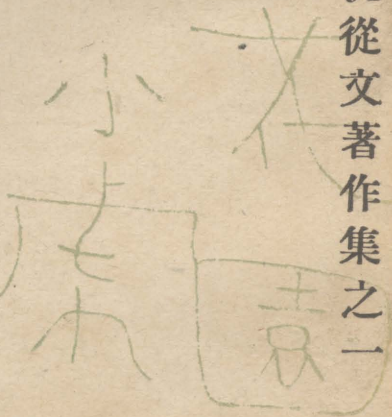 從文著作集之一
園
小